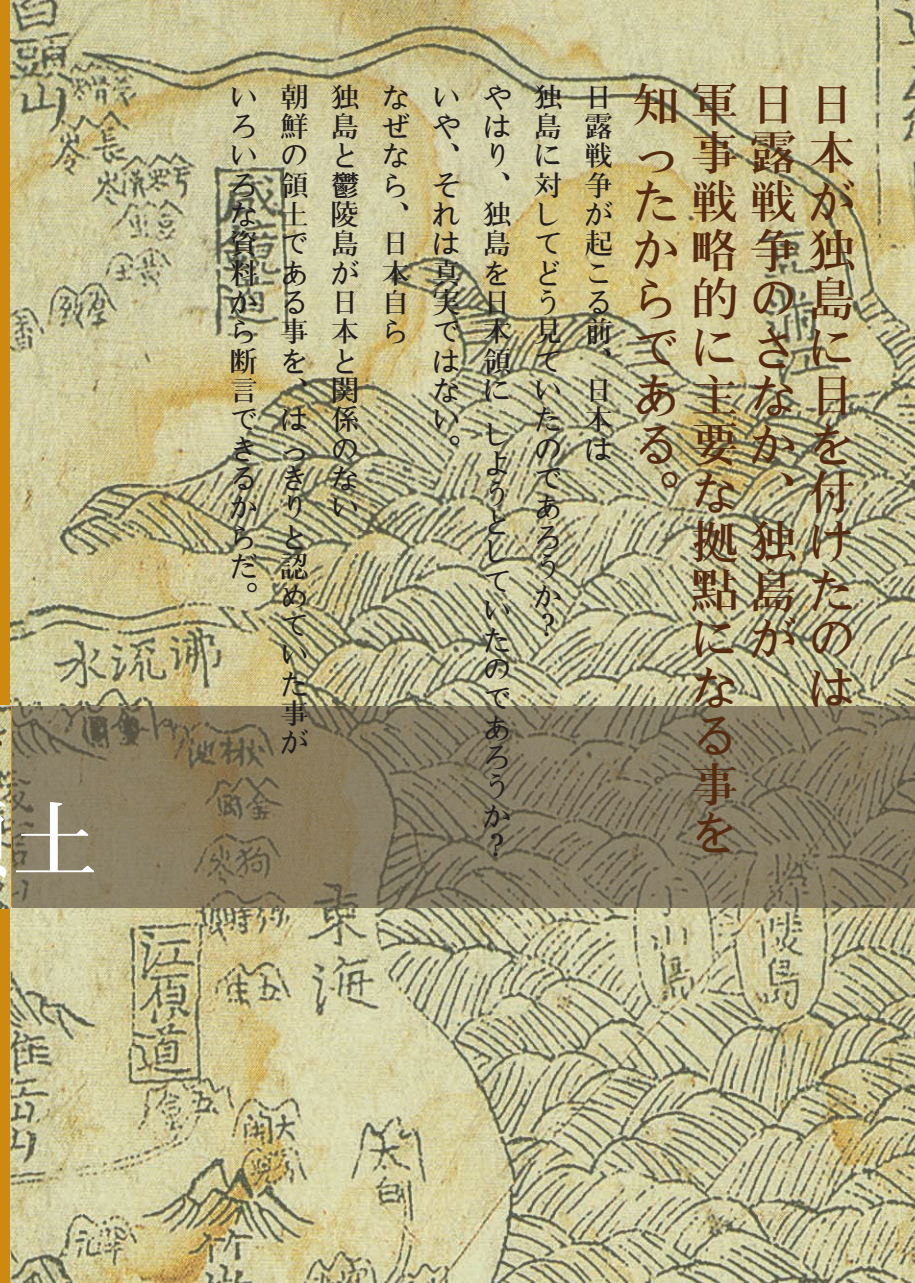 日本が独島に日を付けたのは
日露戦争のさなか、独島が
軍事戦略的に主要な拠點になる事を
知 ったからである。
日露戦争が起こる前、日本は
独島に対してどう見ていたのであろうか?
やはり、独島を日本領に しようとしていたのであろうか?
いや、それは真実ではない。
なぜなら、日本自ら
独島と鬱陵島が日本と関係のない
朝鮮の領土である事を、はっきりと認めていた事が
いろいろな資料から断言できるからだ。
土
白頭山
咸鏡道
水流沸
東海
江原道
陵島
山島
太白
五臺
大関